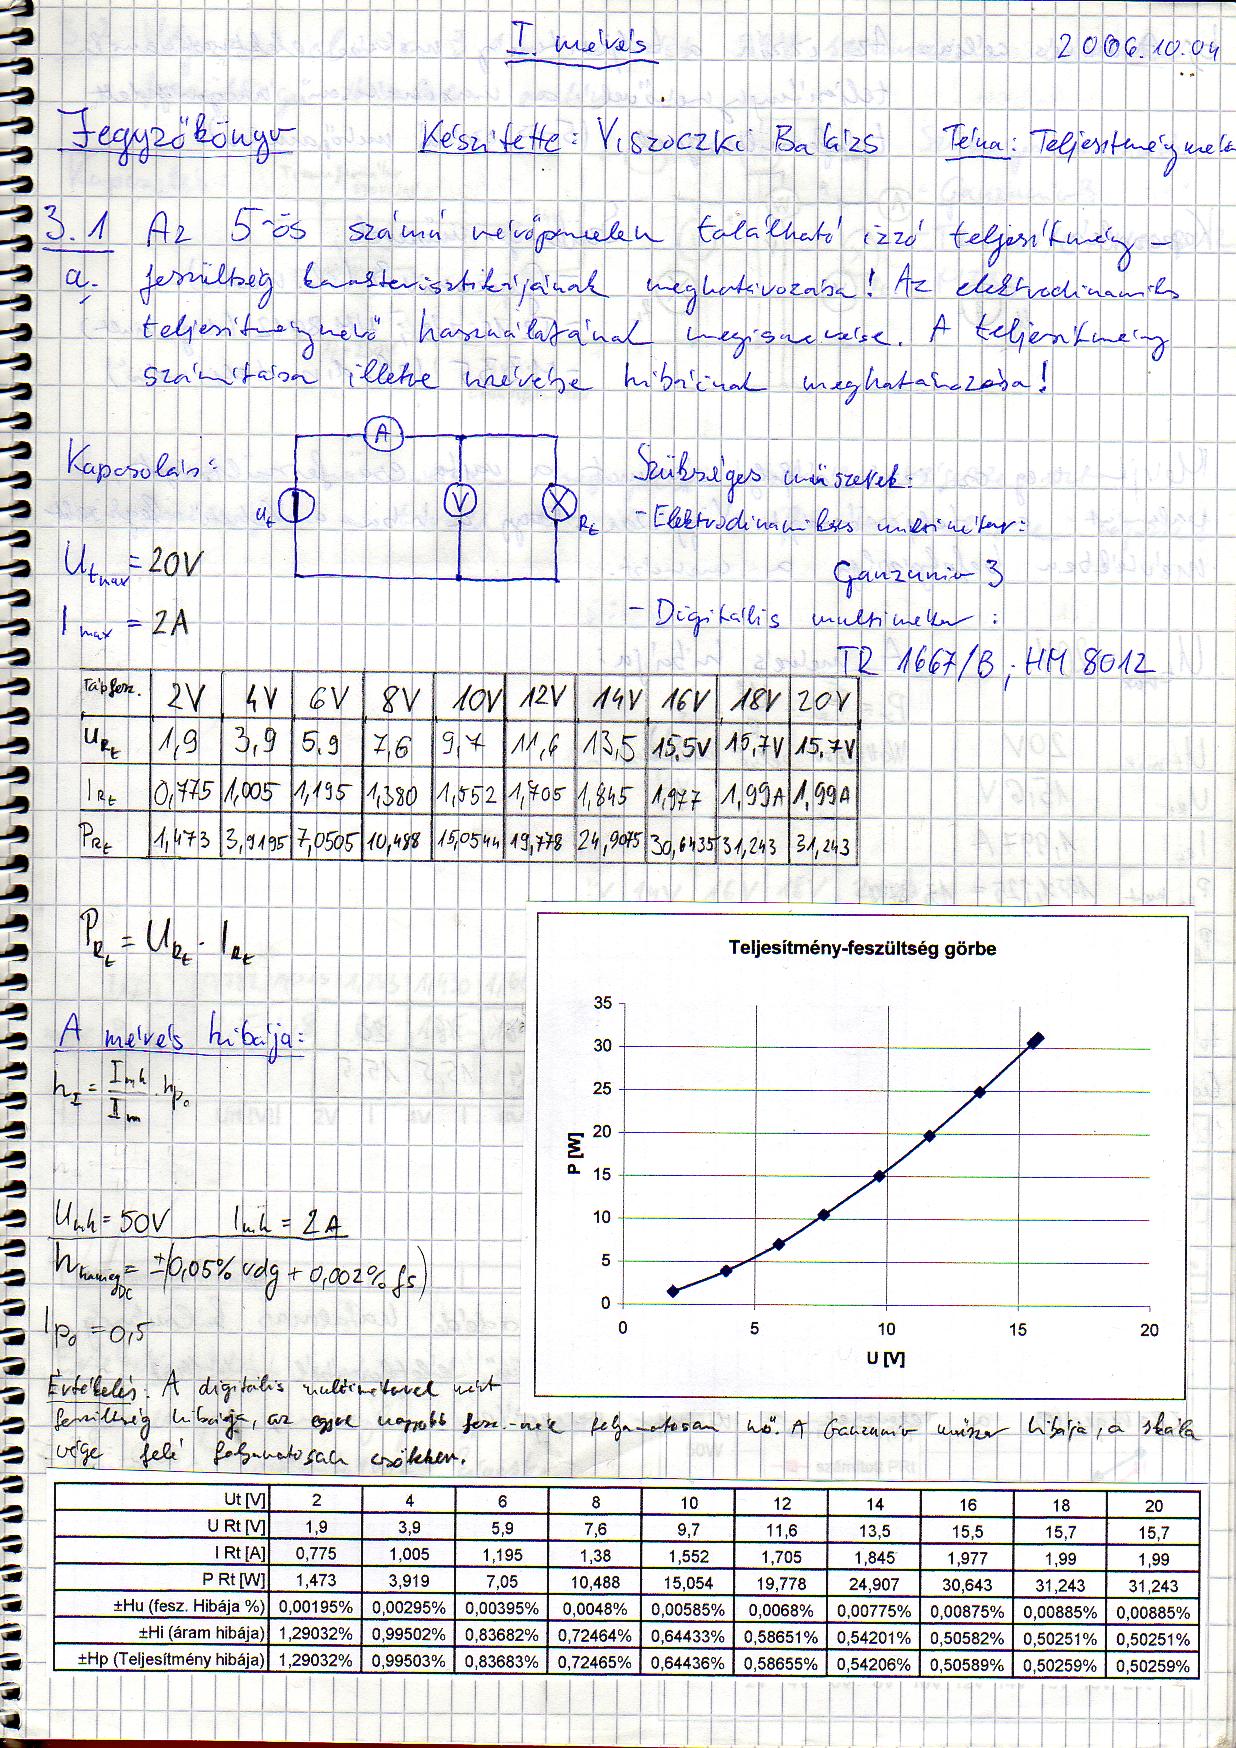 I. mérés 2006.10.04
Jegyzőkönyv Készítette: Viszoczki Balázs Téma: Teljesítmény
3.1 Az 5-ös számú mérőpanelen található izzó teljesítmény –
a. feszültség karakterisztikájának meghatározása! Az elektrodinamikus
teljesítménymérő használatának megismerése. A teljesítmény
számítása illetve mérése hibáinak meghatározása!
Kapcsolás:
A
V
Ut
Rt
Utmax = 20V
Imax = 2A
Szükséges műszerek:
- Elektrodinamikus multiméter:
Ganzuniv 3
- Digitális multiméter :
TR 1667/B ; HM 8012
Tápfesz. 2V 4V 6V 8V 10V 12V 14V 16V 18V 20V
URt 1,9 3,9 5,9 7,6 9,7 11,6 13,5 15,5V 15,7V 15,7V
IRt 0,775 1,005 1,195 1,380 1,552 1,705 1,845 1,977 1,99A 1,99A
PRt 1,473 3,9195 7,0505 10,488 15,0544 19,778 24,9075 30,6435 31,243 31,243
PRt = URt · IRt
A mérés hibája:
hI = Imh / Im · hpo
Umh = 50V Imh = 2A
hhameg DC = ±(0,05% rdg + 0,002% fs)
Ipo = 0,5
Teljesítmény-feszültség görbe
P [W]
35
30
25
20
15
10
5
0
0 5 10 15 20
U [V]
Értékelés: A digitális multiméterrel mért
feszültség hibája, az egyre nagyobb fesz.-nél folyamatosan nő. A Ganzuniv műszer hibája, a skála
vége felé folyamatosan csökken.
Ut [V] 2 4 6 8 10 12 14 16 18 20
U Rt [V] 1,9 3,9 5,9 7,6 9,7 11,6 13,5 15,5 15,7 15,7
I Rt [A] 0,775 1,005 1,195 1,38 1,552 1,705 1,845 1,977 1,99 1,99
P Rt [W] 1,473 3,919 7,05 10,488 15,054 19,778 24,907 30,643 31,243 31,243
±Hu (fesz. Hibája %) 0,00195% 0,00295% 0,00395% 0,0048% 0,00585% 0,0068% 0,00775% 0,00875% 0,00885% 0,00885%
±Hi (áram hibája) 1,29032% 0,99502% 0,83682% 0,72464% 0,64433% 0,58651% 0,54201% 0,50582% 0,50251% 0,50251%
±Hp (Teljesítmény hibája) 1,29032% 0,99503% 0,83683% 0,72465% 0,64436% 0,58655% 0,54206% 0,50589% 0,50259% 0,50259%